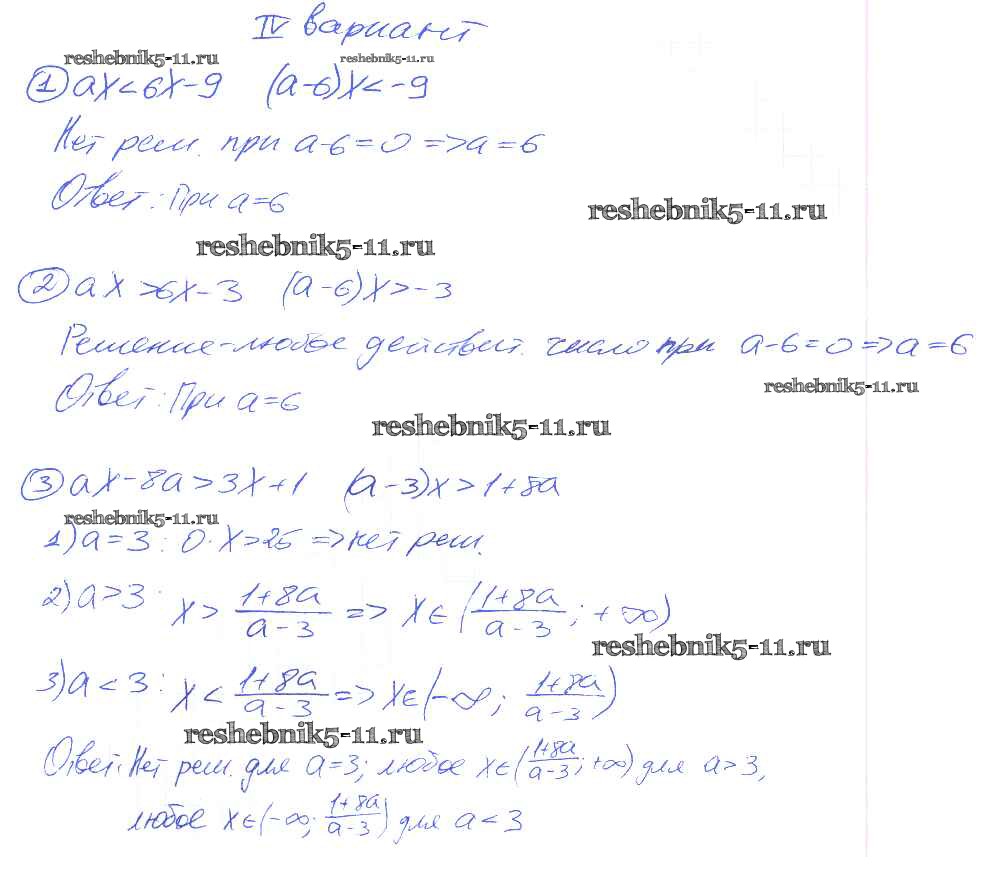 IV вариант
reshebnik5-11.ru reshebnik5-11.ru
① ax<6x-9 (a-6)x<-9
Нет реш. при a-6=0 => a=6
Ответ: При a=6
reshebnik5-11.ru
reshebnik5-11.ru
② ax>6x-3 (a-6)x>-3
Решение-любое действит. число при a-6=0 => a=6
reshebnik5-11.ru
Ответ: При a=6
reshebnik5-11.ru
③ ax-8a>3x+1 (a-3)x>1+8a
reshebnik5-11.ru
1) a=3: 0·x>25 => нет реш.
2) a>3: x> (1+8a)/(a-3) => x∈((1+8a)/(a-3); +∞)
reshebnik5-11.ru
3) a<3: x< (1+8a)/(a-3) => x∈(-∞; (1+8a)/(a-3))
reshebnik5-11.ru
Ответ: Нет реш. для a=3; любое x∈((1+8a)/(a-3); +∞) для a>3,
любое x∈(-∞; (1+8a)/(a-3)) для a<3